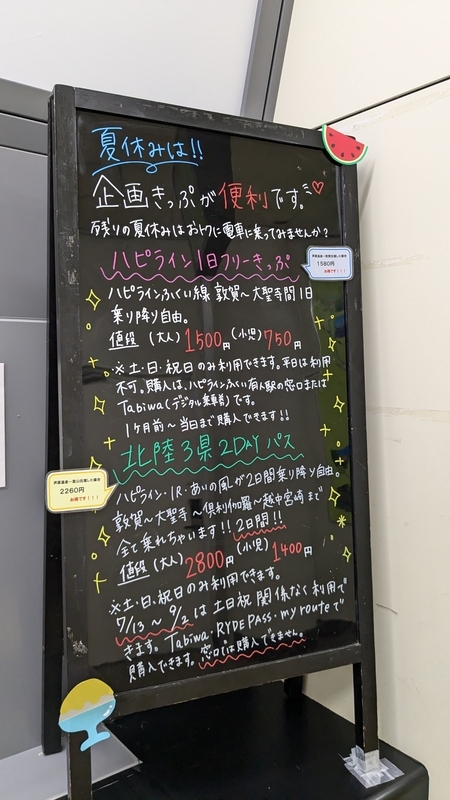 夏休みは!!
企画きっぷが便利です。
残りの夏休みはおトクに電車に乗ってみませんか?
ハピライン1日フリーきっぷ
1580円
お得です!!!
ハピラインふくい線 敦賀~大聖寺間1日
乗り降り自由。
値段 (大人) 1500円 (小児) 750円
※土・日・祝日のみ利用できます。平日は利用
不可。購入は、ハピラインふくい有人駅の窓口または
Tabiwa(デジタル乗車券)です。
1ヶ月前~当日まで購入できます!!
北陸3県2DAYパス
2260円
お得です!!!
ハピライン・IR・あいの風が2日間乗り降り自由。
敦賀~大聖寺~倶利伽羅~越中宮崎まで
全て乗れちゃいます!!2日間!!
値段 (大人) 2800円 (小児) 1400円
※土・日・祝日のみ利用できます。
7/13~9/2は土日祝関係なく利用で
きます。Tabiwa・RYDE PASS・my routeで
購入できます。窓口は購入できません。